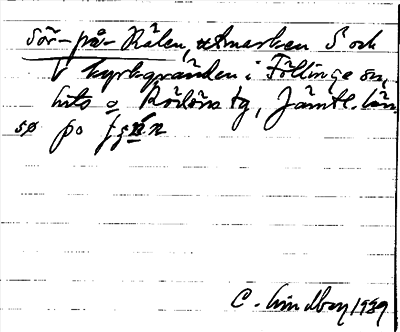 Sör-på-Kälen, utmarken S och
V kyrkgränden i Föllinge sn,
hts o Rödöns tg, Jämtl. län.
sø po
C. Lindberg 1939